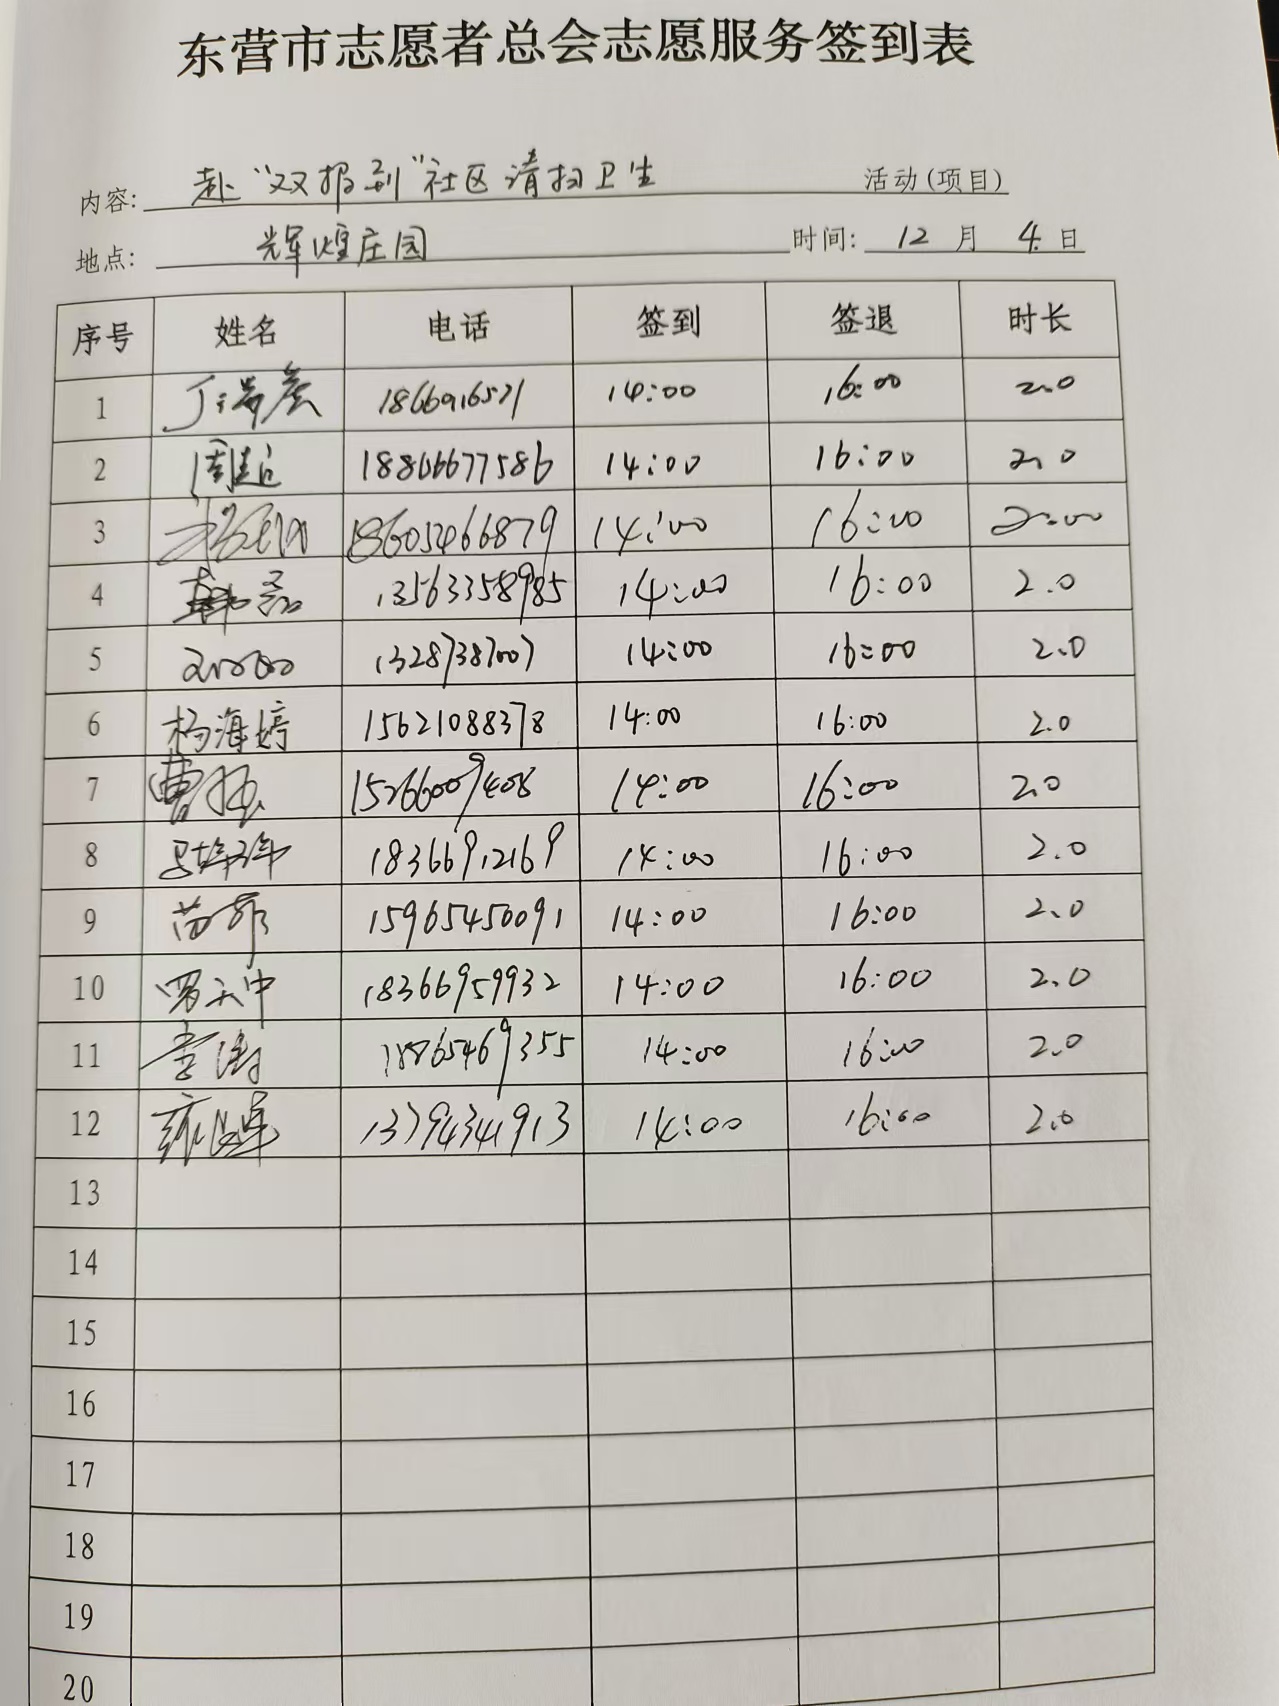 东营市志愿者总会志愿服务签到表
内容: 赴"双报到"社区清扫卫生 活动(项目)
地点: 辉煌庄园 时间: 12 月 4 日
序号 姓名 电话 签到 签退 时长
1 14:00 16:00 2.0
2 18866677586 14:00 16:00 2.0
3 18605466879 14:00 16:00 2:00
4 13563358985 14:00 16:00 2.0
5 13287387007 14:00 16:00 2.0
6 杨海婷 15621088378 14:00 16:00 2.0
7 15266009408 14:00 16:00 2.0
8 18366912169 14:00 16:00 2.0
9 15965450091 14:00 16:00 2.0
10 18366959932 14:00 16:00 2.0
11 李涛 18865469355 14:00 16:00 2.0
12 13794341913 14:00 16:00 2.0
13
14
15
16
17
18
19
20